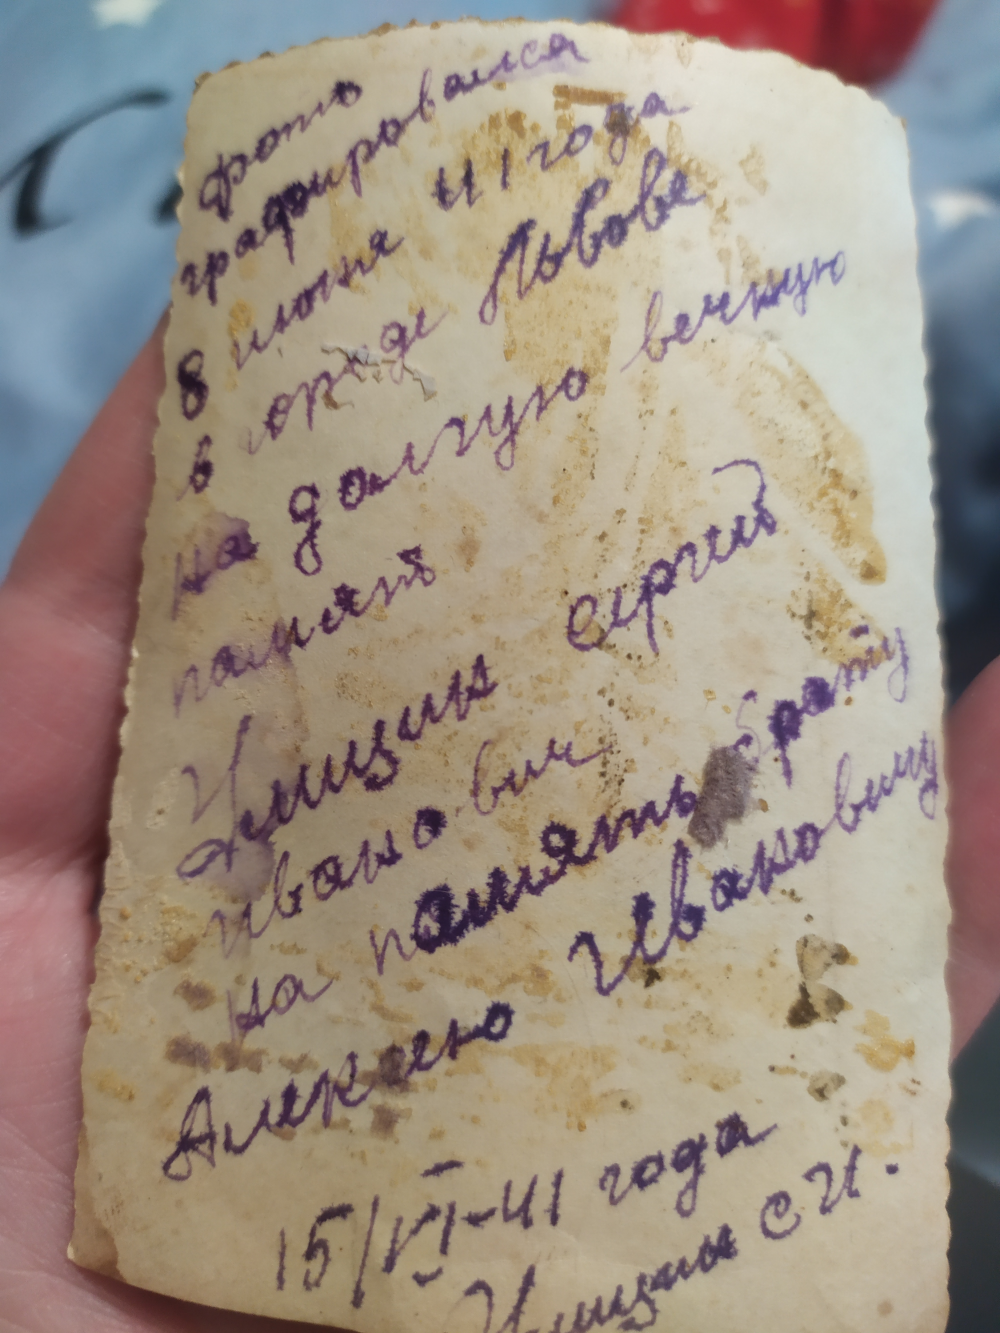 фотъ
графировался
8 июня 41 года
в городе Львове
на долгую вечную
память
сергий
иванович
на память брату
Алексею Ивановичу
15/VI-41 года
С И.